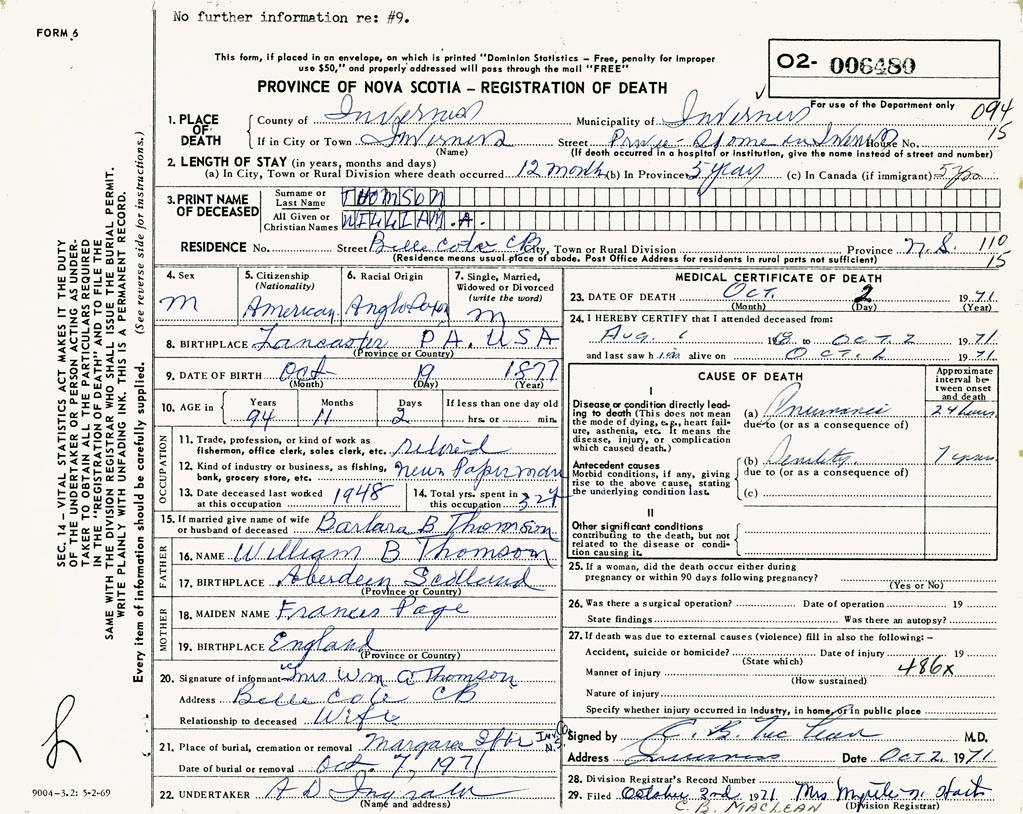 No further information re: #9.
FORM 6
This form, if placed in an envelope, on which is printed "Dominion Statistics – Free, penalty for improper
use $50," and properly addressed will pass through the mail "FREE"
02- 006480
PROVINCE OF NOVA SCOTIA – REGISTRATION OF DEATH
For use of the Department only
094
15
1. PLACE OF DEATH County of Inverness Municipality of Inverness
If in City or Town Inverness Street Home in House No.
(Name) (If death occurred in a hospital or institution, give the name instead of street and number)
2. LENGTH OF STAY (in years, months and days)
(a) In City, Town or Rural Division where death occurred 12 month (b) In Province 5 year (c) In Canada (if immigrant) 5 yrs
3. PRINT NAME OF DECEASED Surname or Last Name THOMSON
All Given or Christian Names WILLIAM .A.
RESIDENCE No. Street Belle Cote CB City, Town or Rural Division Province N.S. 110
15
(Residence means usual place of abode. Post Office Address for residents in rural parts not sufficient)
SEC. 14 – VITAL STATISTICS ACT MAKES IT THE DUTY
OF THE UNDERTAKER OR PERSON ACTING AS UNDER-
TAKER TO OBTAIN ALL THE PARTICULARS REQUIRED
IN THE "REGISTRATION OF DEATH" AND TO FILE THE
SAME WITH THE DIVISION REGISTRAR WHO SHALL ISSUE THE BURIAL PERMIT.
WRITE PLAINLY WITH UNFADING INK. THIS IS A PERMANENT RECORD.
Every item of information should be carefully supplied. (See reverse side for instructions.)
4. Sex M
5. Citizenship (Nationality) American
6. Racial Origin
7. Single, Married, Widowed or Divorced (write the word) m
8. BIRTHPLACE Lancaster PA. USA
(Province or Country)
9. DATE OF BIRTH Oct 19 1877
(Month) (Day) (Year)
10. AGE in Years 94 Months 11 Days 2 If less than one day old hrs. or min.
OCCUPATION
11. Trade, profession, or kind of work as
fisherman, office clerk, sales clerk, etc. retired
12. Kind of industry or business, as fishing,
bank, grocery store, etc. News Paper man
13. Date deceased last worked at this occupation 1948
14. Total yrs. spent in this occupation
15. If married give name of wife
or husband of deceased Barbara B Thomson
FATHER
16. NAME William B Thomson
17. BIRTHPLACE Aberdeen Scotland
(Province or Country)
MOTHER
18. MAIDEN NAME Frances Page
19. BIRTHPLACE England
(Province or Country)
20. Signature of informant Mrs Wm A Thomson
Address Belle Cote CB
Relationship to deceased Wife
21. Place of burial, cremation or removal Margaree Inv. Co N.S.
Date of burial or removal Oct. 7, 1971
22. UNDERTAKER A D Ingraham
(Name and address)
9004-3.2: 5-2-69
MEDICAL CERTIFICATE OF DEATH
23. DATE OF DEATH Oct. 2 1971
(Month) (Day) (Year)
24. I HEREBY CERTIFY that I attended deceased from:
Aug. 19 to OCT. 2 1971
and last saw h im alive on OCT. 1971
CAUSE OF DEATH
Approximate interval between onset and death
I
Disease or condition directly leading to death (This does not mean the mode of dying, e.g., heart failure, asthenia, etc. It means the disease, injury, or complication which caused death.)
(a) Pneumonia 24 hours
due to (or as a consequence of)
Antecedent causes
Morbid conditions, if any, giving rise to the above cause, stating the underlying condition last.
(b) Senility
due to (or as a consequence of)
(c)
II
Other significant conditions
contributing to the death, but not
related to the disease or condi-
tion causing it.
25. If a woman, did the death occur either during
pregnancy or within 90 days following pregnancy?
(Yes or No)
26. Was there a surgical operation? Date of operation 19
State findings Was there an autopsy?
27. If death was due to external causes (violence) fill in also the following: –
Accident, suicide or homicide? Date of injury 19
(State which)
Manner of injury 486x
(How sustained)
Nature of injury
Specify whether injury occurred in industry, in home, or in public place
Signed by C. B. MacLean M.D.
Address Inverness Date Oct 2, 1971
28. Division Registrar's Record Number
29. Filed October 2nd 1971 Mrs Myrtle
C. B. MACLEAN (Division Registrar)